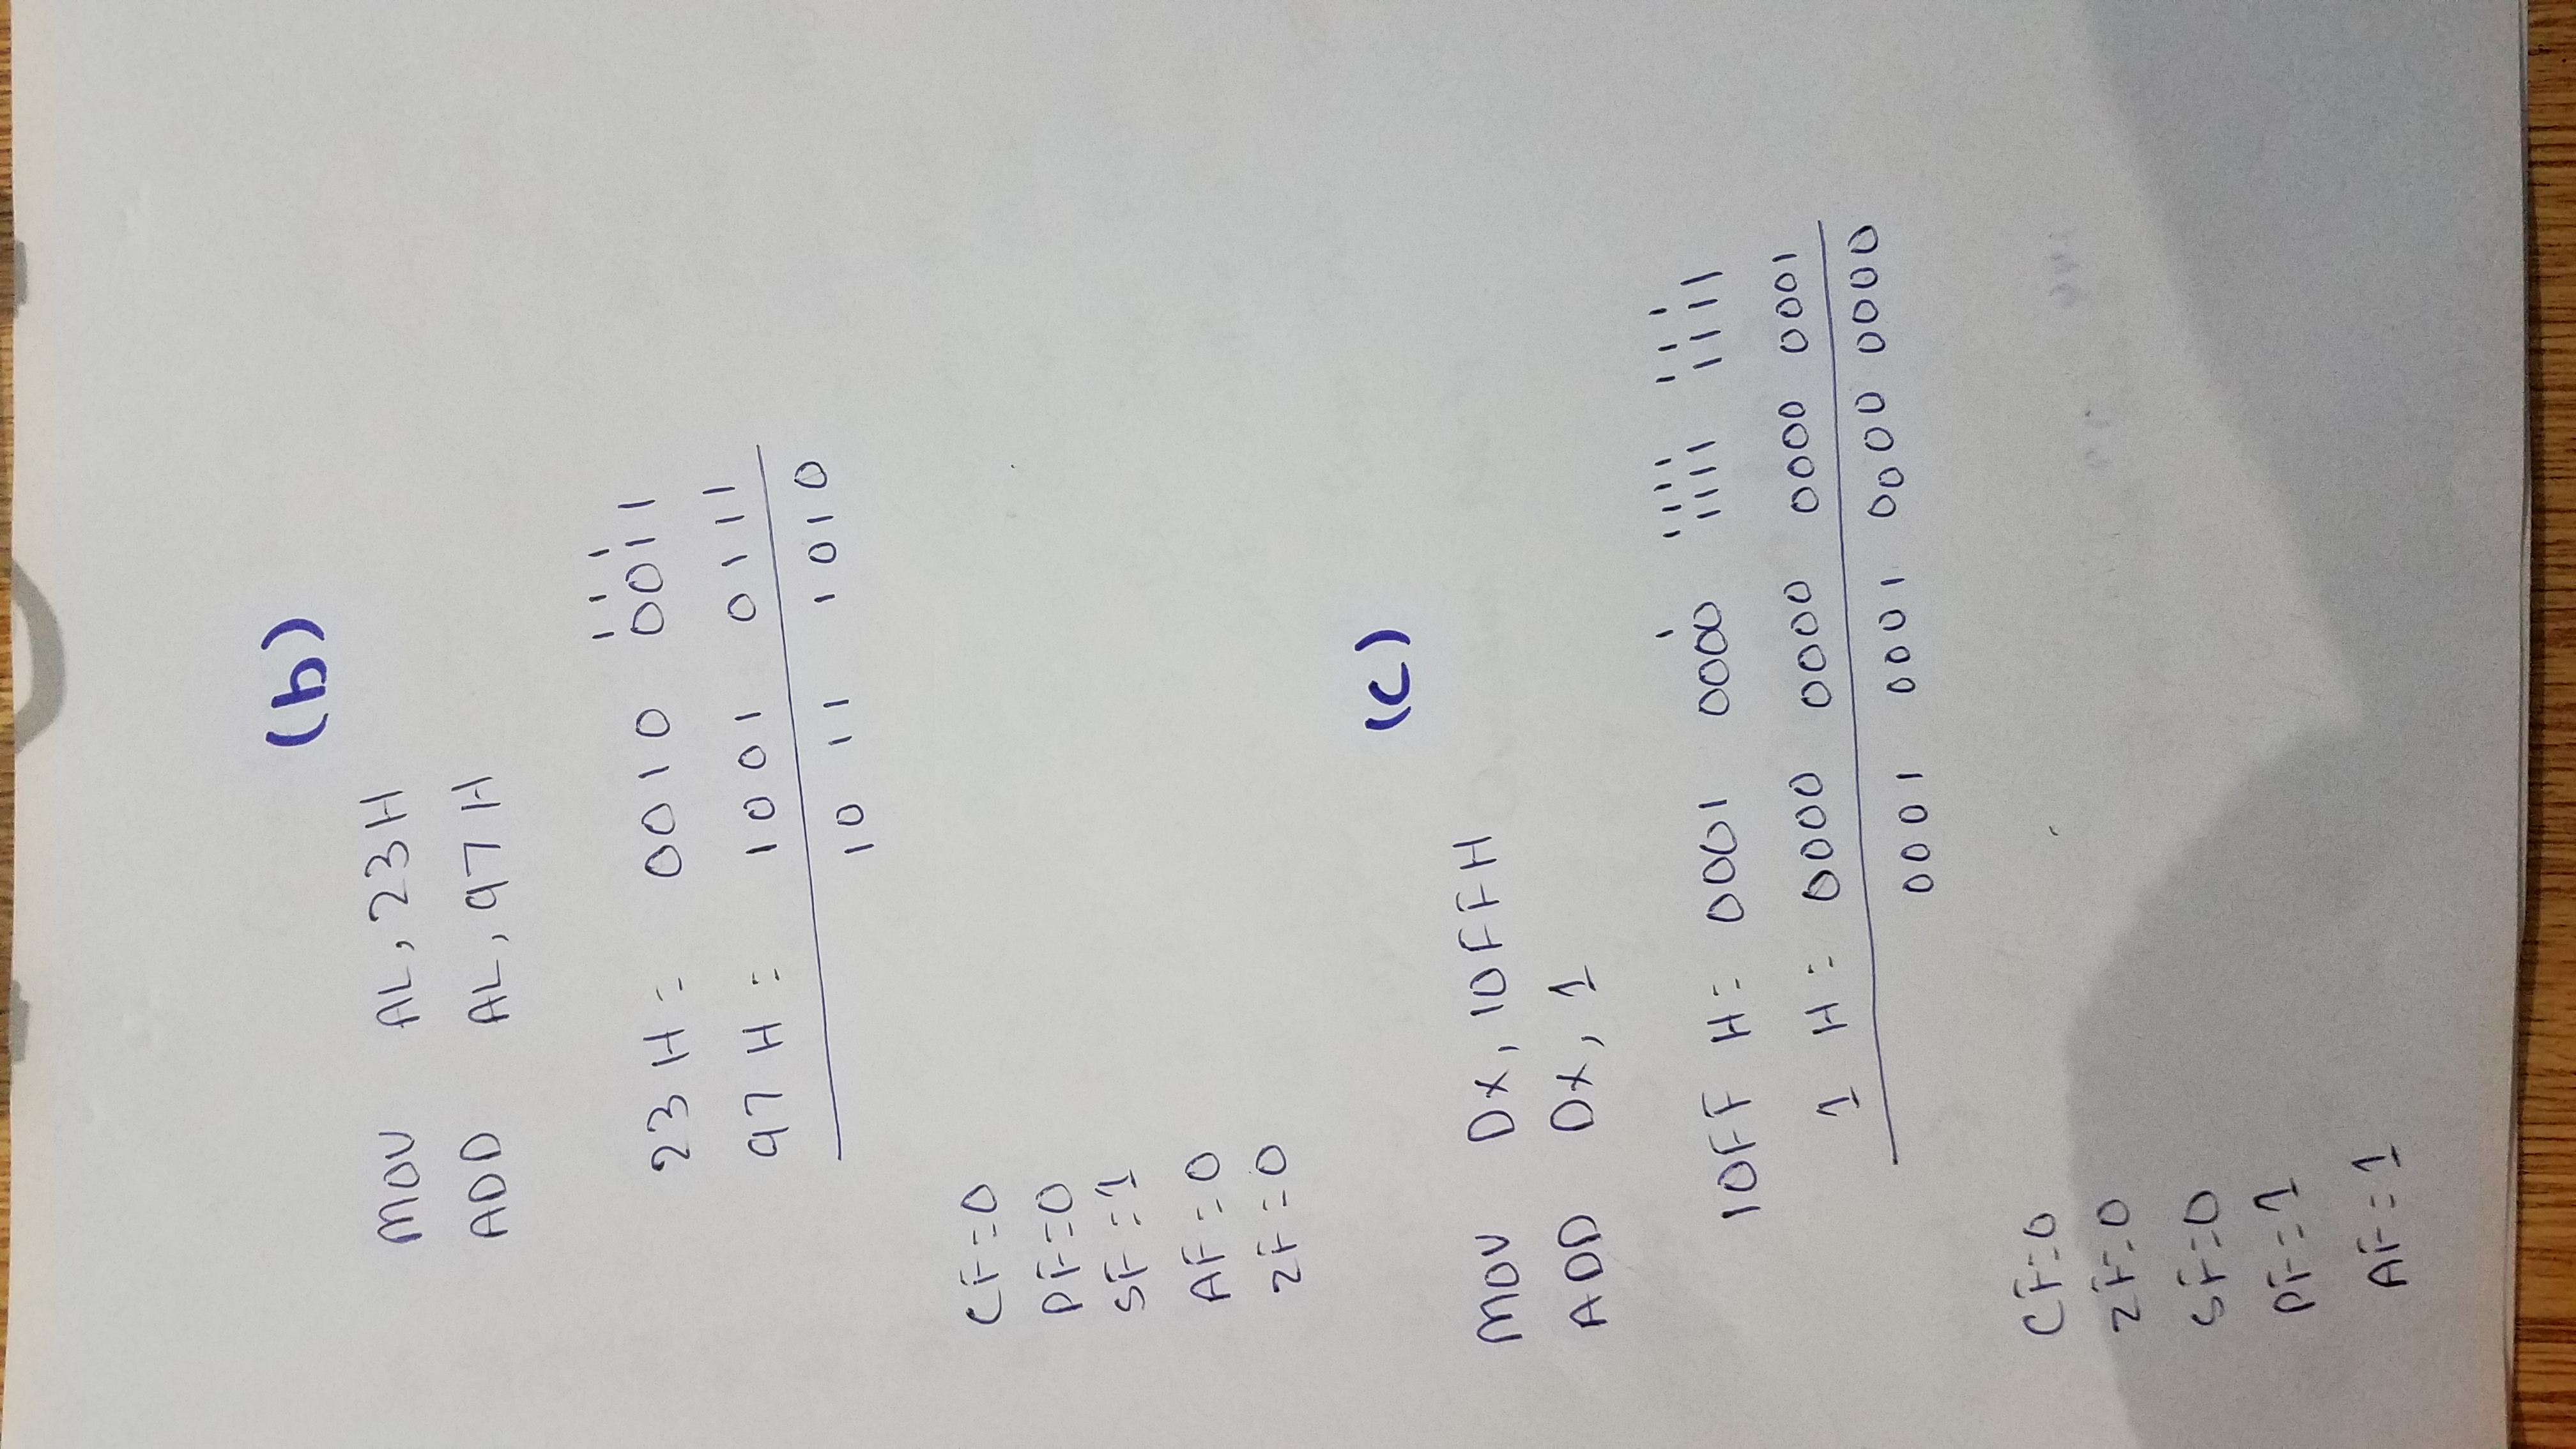 (b)
MOV AL, 23H
ADD AL, 97H
1 1 1
23 H = 0010 0011
97 H = 1001 0111
1011 1010
CF=0
PF=0
SF=1
AF=0
ZF=0
(c)
MOV DX, 10FFH
ADD DX, 1
1 1111 111
10FF H= 0001 0000 1111 1111
1 H= 0000 0000 0000 0001
0001 0001 0000 0000
CF=0
ZF=0
SF=0
PF=1
AF=1